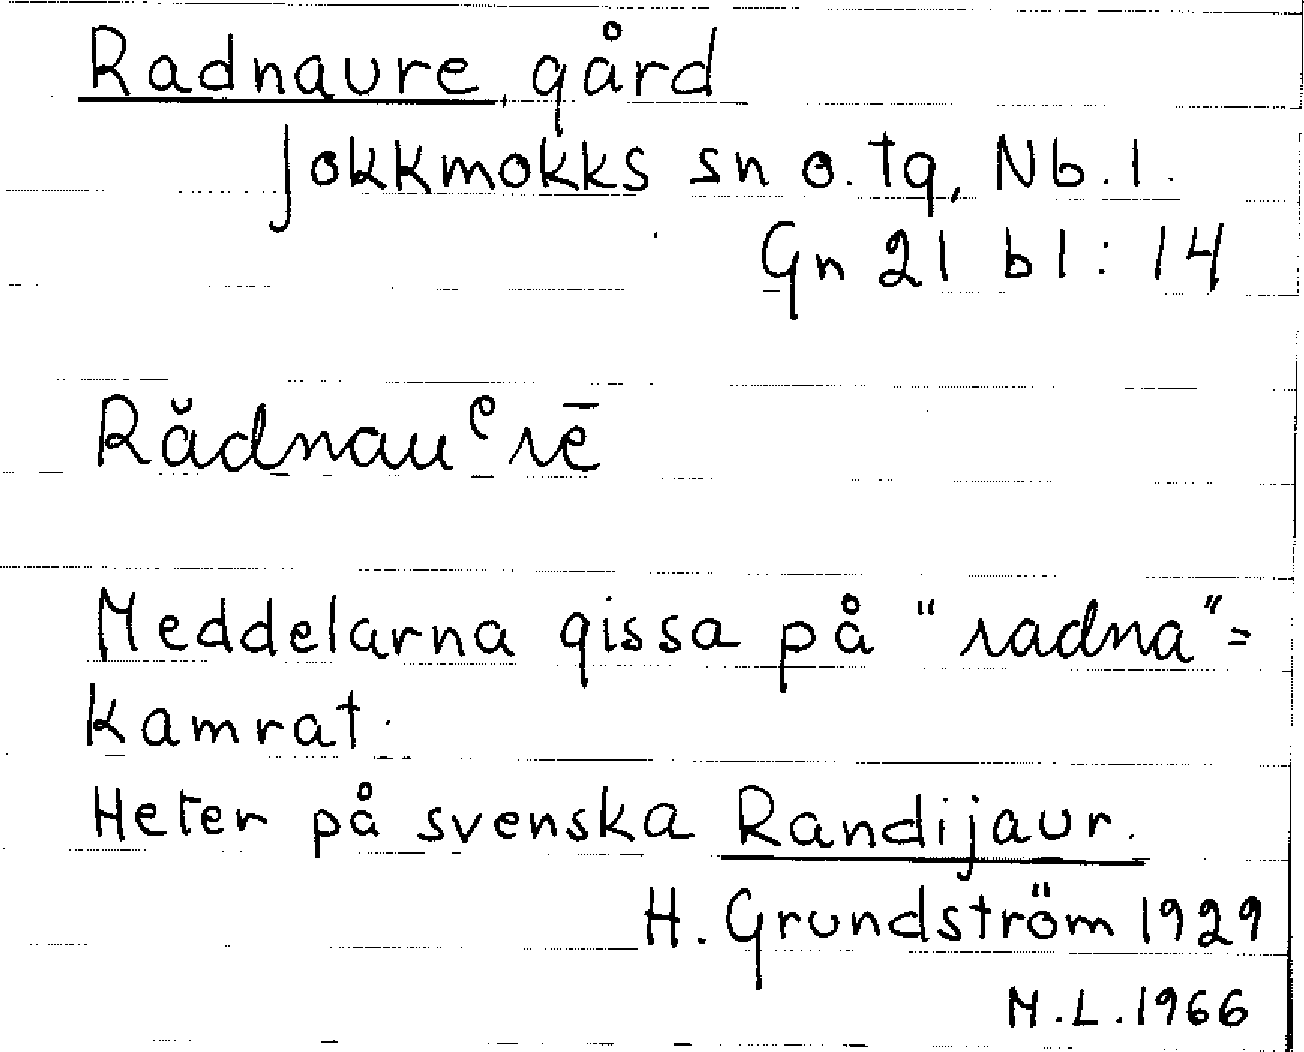 Radnaure, gård
Jokkmokks sn o. tg, Nb. l.
Gn 21 bl: 14
Rădnauᵉrē
Meddelarna gissa på "radna" =
kamrat.
Heter på svenska Randijaur.
H. Grundström 1929
M.L. 1966